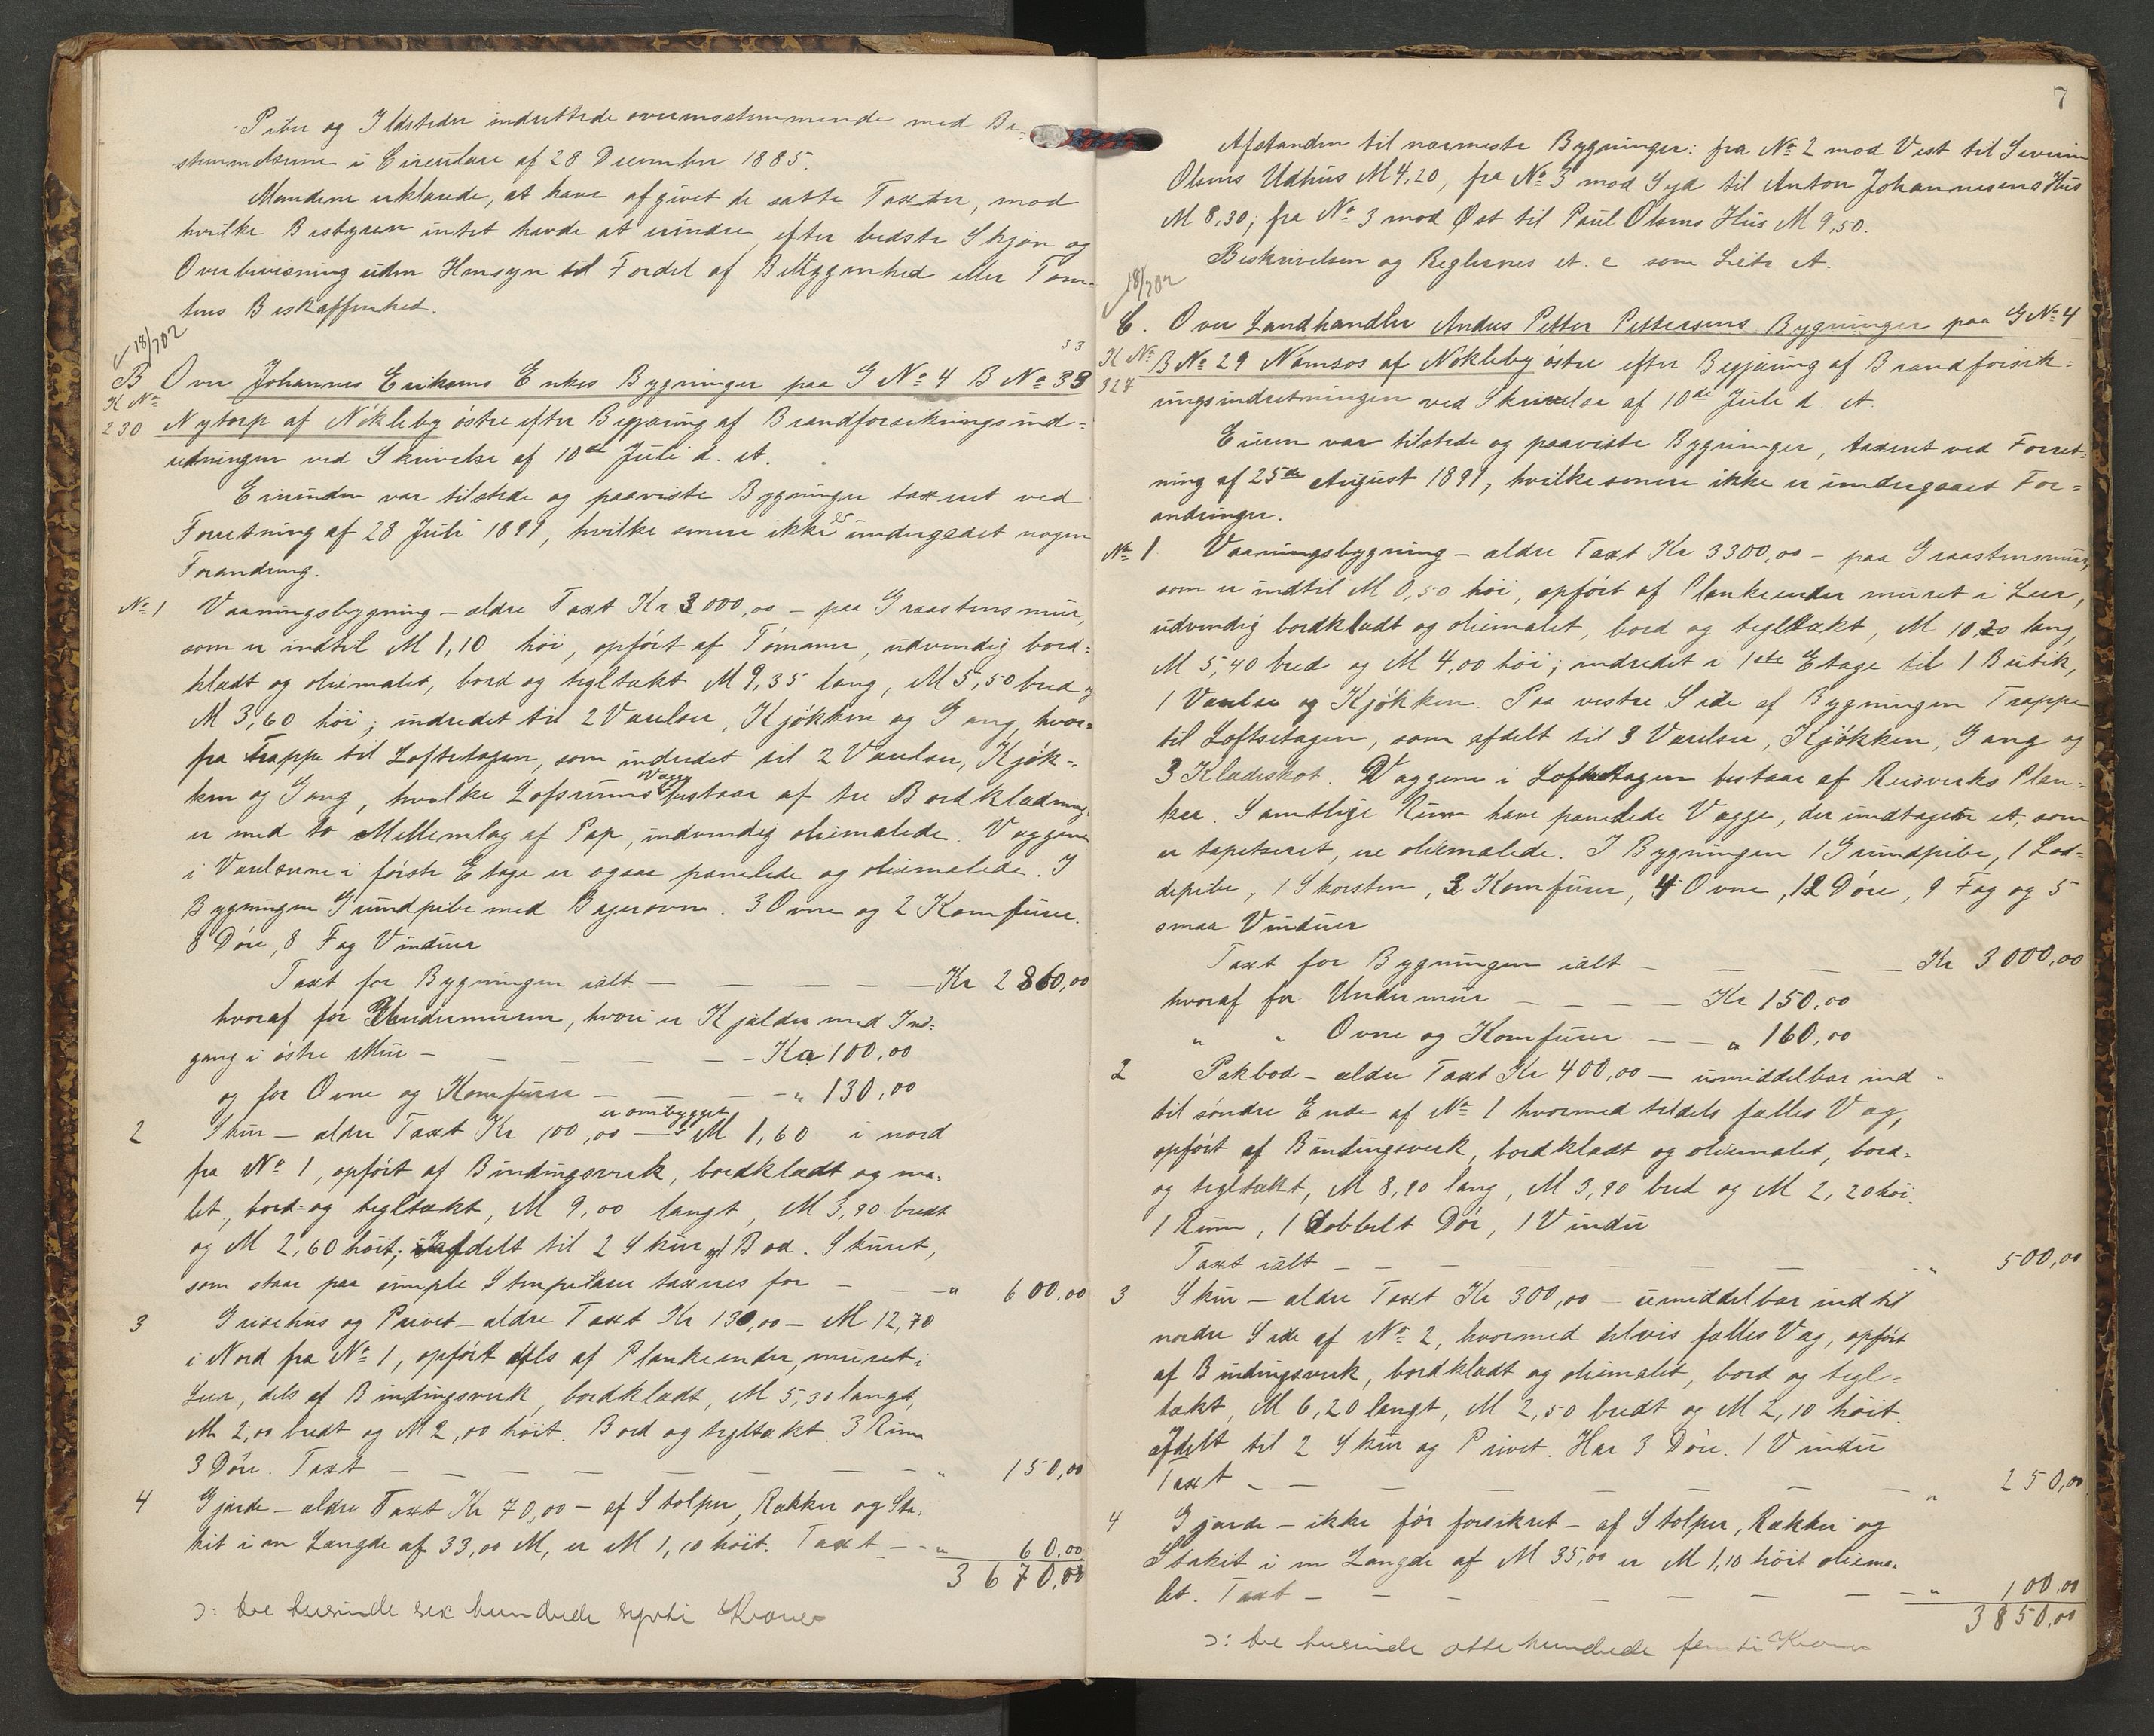 Piber og Ildsteder indrettede overensstemmende med Be-
stemmelserne i Circulære af 28 December 1885.
Mændene erklærede, at have afgivet de satte Taxter, mod
hvilke Bestyreren intet havde at erindre, efter bedste Skjøn og
Overbevisning uden Hensyn til Fordel af Beliggenhed eller Tom-
tens Beskaffenhed.
18/702
33
B Over Johannes Eriksens Enkes Bygninger paa G No 4 B No 33
K No
230 Nytorp af Nökleby östre efter Begjæring af Brandforsikringsind-
retningen ved Skrivelse af 10de Juli d. A.
Eierinden var tilstede og paaviste Bygninger taxeret ved
Forretning af 28 Juli 1891, hvilke senere ikke er undergaaet nogen
Forandring.
No 1 Vaaningsbygning – ældre Taxt Kr 3000,00 – paa Graastensmur,
som er indtil M 1,10 höi, opfört af Tömmer, udvendig bord-
klædt og oliemalet, bord og tegltækt M 9,35 lang, M 5,50 bred og
M 3,60 höi; indredet til 2 Værelser, Kjökken og Gang, hvor-
fra Trappe til Loftsetagen, som indredet til 2 Værelser, Kjök-
ken og Gang, hvilke Loftsrums Vægge bestaar af tre Bordklædning-
er med to Mellemlag af Pap, indvendig oliemalede. Væggene
i Værelserne i förste Etage er ogsaa panelede og oliemalede. I
Bygningen Grundpibe med Bagerovn. 3 Ovne og 2 Komfurer.
8 Döre, 8 Fag Vinduer
Taxt for Bygningen ialt — — — — — Kr 2860,00
hvoraf for Undermuren, hvori er Kjelder med Ind-
gang i östre Mur – — — — — Kr 100,00
og for Ovne og Komfurer — — — — " 130,00
er ombygget
2 Skur – ældre Taxt Kr 100,00 — M 1,60 i nord
fra No 1, opfört af Bindingsverk, bordklædt og ma-
let, bord- og tegltækt, M 9,00 langt, M 3,90 bredt
og M 2,60 höit; afdelt til 2 Skur og 1 Bod. Skuret,
som staar paa simple Stenpelarer taxeres for — — " 600,00
3 Grisehus og Privet – ældre Taxt Kr 130,00 – M 12,70
i Nord fra No 1, opfört dels af Plankeender, muret i
Leer, dels af Bindingsverk, bordklædt, M 5,30 langt,
M 2,00 bredt og M 2,00 höit. Bord og tegltækt. 3 Rum
3 Döre. Taxt — — — — — — " 150,00
4 Gjærde – ældre Taxt Kr 70,00 – af Stolper, Rækker og Sta-
kit i en Længde af 33,00 M, er M 1,10 höit. Taxt – – " 60,00
3670,00
ɔ: tre tusinde sex hundrede sytti Kroner
7
Afstanden til nærmeste Bygninger: fra No 2 mod Vest til Severin
Olsens Udhus M 4,20, fra No 3 mod Syd til Anton Johannesens Hus
M 8,30; fra No 3 mod Øst til Paul Olsens Hus M 9,50.
Beskrivelsen og Reglernes A. c som Letr A.
18/702
C. Over Landhandler Anders Petter Pettersens Bygninger paa G No 4
K No B No 29 Namsos af Nökleby östre efter Begjæring af Brandforsik-
327 ringsindretningen ved Skrivelse af 10de Juli d. A.
Eieren var tilstede og paaviste Bygninger, taxeret ved Forret-
ning af 25de August 1891, hvilke senere ikke er undergaaet For-
andringer.
No 1 Vaaningsbygning – ældre Taxt Kr 3300,00 – paa Graastensmur,
som er indtil M 0,50 höi, opfört af Plankeender muret i Leer,
udvendig bordklædt og oliemalet, bord og tegltækt, M 10,20 lang,
M 5,40 bred og M 4,00 höi; indredet i 1ste Etage til 1 Butik,
1 Værelse og Kjökken. Paa vestre Side af Bygningen Trappe
til Loftsetagen, som afdelt til 3 Værelser, Kjökken, Gang og
3 Klædeskot. Væggene i Loftsetagen bestaar af Reisverks Plan-
ker. Samtlige Rum have panelede Vægge, der undtagen et, som
er tapetseret, ere oliemalede. I Bygningen 1 Grundpibe, 1 Lod-
depibe, 1 Skorsten, 3 Komfurer, 4 Ovne, 12 Döre, 9 Fag og 5
smaa Vinduer
Taxt for Bygningen ialt — — — — Kr 3000,00
hvoraf for Undermur — — — — Kr 150,00
" " Ovne og Komfurer — — " 160,00
2 Pakbod – ældre Taxt Kr 400,00 – umiddelbar ind
til söndre Ende af No 1 hvormed tildels fælles Væg,
opfört af Bindingsverk, bordklædt og oliemalet, bord-
og tegltækt, M 8,90 lang, M 3,90 bred og M 2,20 höi.
1 Rum, 1 dobbelt Dör, 1 Vindu
Taxt ialt – – — — — — — " 500,00
3 Skur – ældre Taxt Kr 300,00 – umiddelbar ind til
nordre Side af No 2, hvormed delvis fælles Væg, opfört
af Bindingsverk, bordklædt og oliemalet, bord og tegl-
tækt, M 6,20 langt, M 2,50 bredt og M 2,10 höit.
afdelt til 2 Skur og Privet. Har 3 Döre. 1 Vindu
Taxt – – — — — — — " 250,00
4 Gjærde – ikke för forsikret – af Stolper, Rækker og
Stakit i en Længde af M 35,00 er M 1,10 höit oliema-
let. Taxt – – — — — — — " 100,00
3850,00
ɔ: tre tusinde otte hundrede femti Kroner